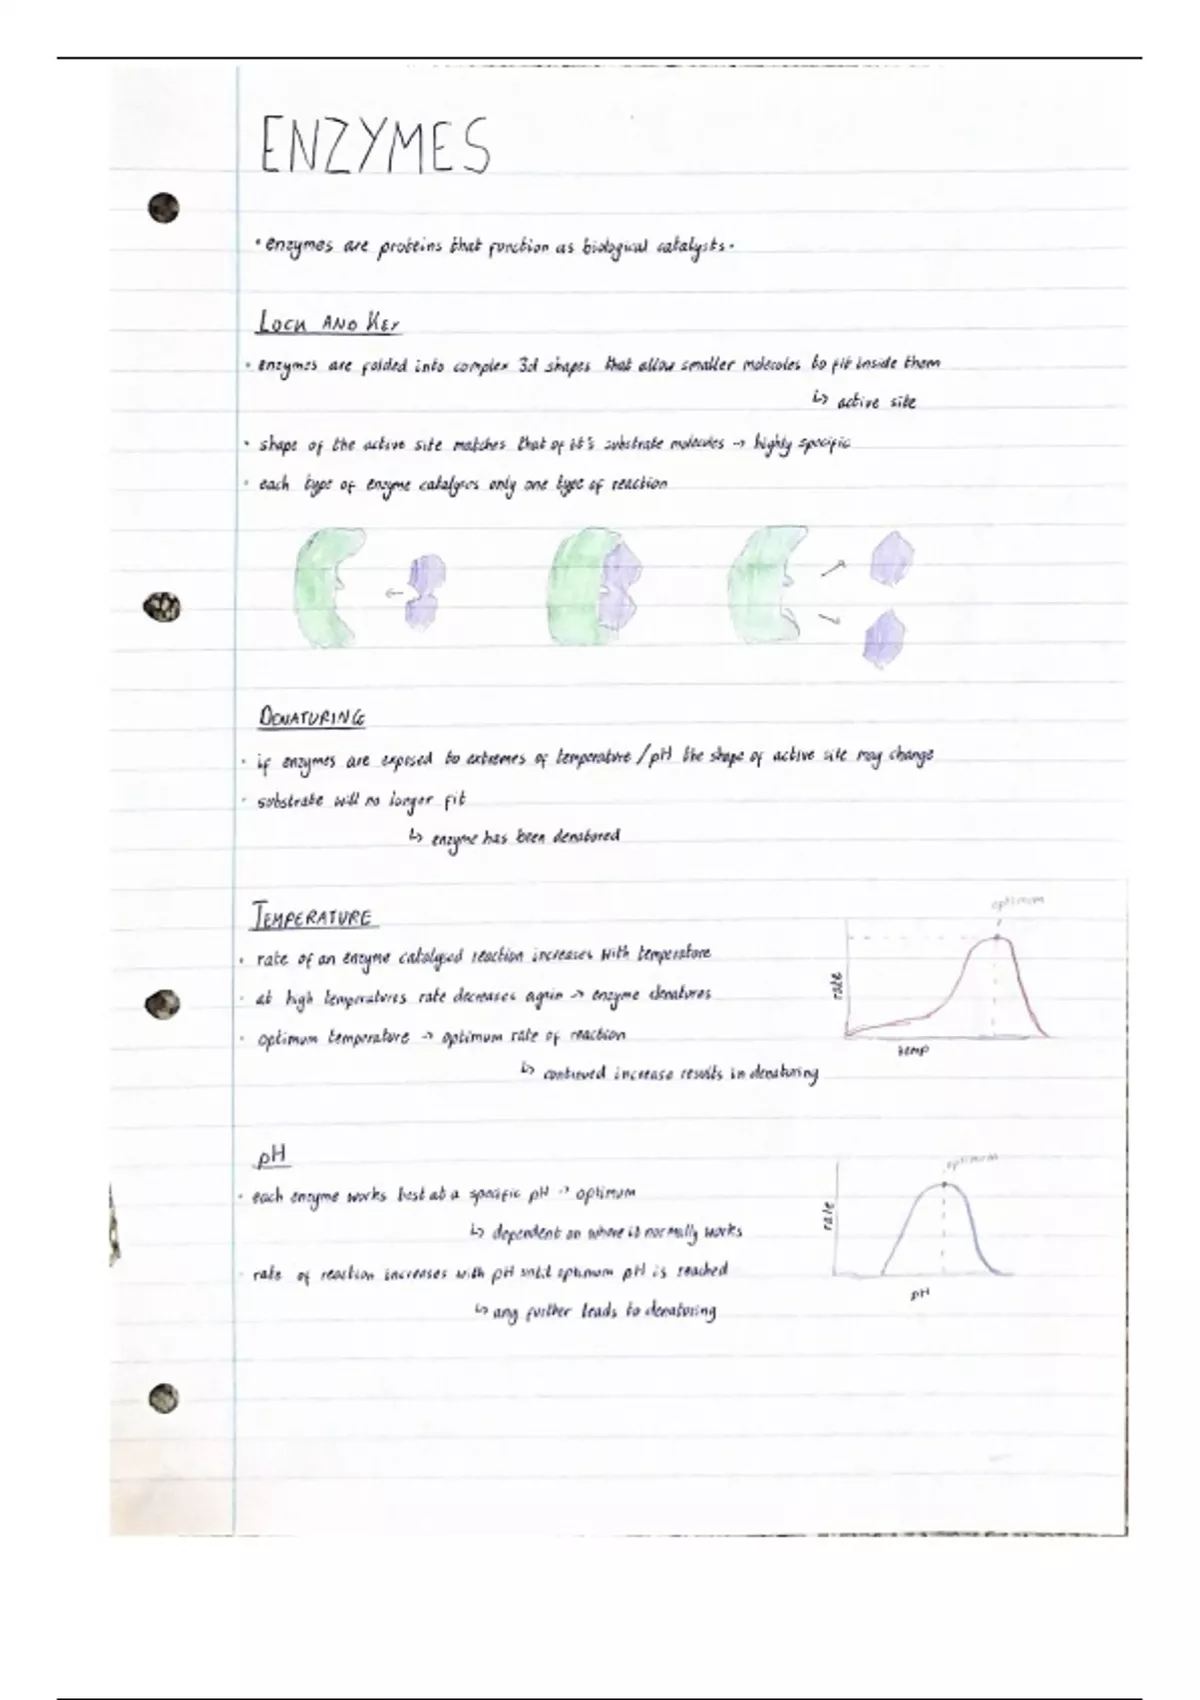 ENZYMES
• enzymes are proteins that function as biological catalysts.
LOCK AND KEY
• enzymes are folded into complex 3d shapes that allow smaller molecules to fit inside them
↳ active site
• shape of the active site matches that of it's substrate molecules → highly specific
• each type of enzyme catalyses only one type of reaction
DENATURING
• if enzymes are exposed to extremes of temperature / pH the shape of active site may change
• substrate will no longer fit
↳ enzyme has been denatured
TEMPERATURE
• rate of an enzyme catalysed reaction increases with temperature
• at high temperatures rate decreases again → enzyme denatures
• optimum temperature → optimum rate of reaction
↳ continued increase results in denaturing
optimum
rate
temp
pH
• each enzyme works best at a specific pH → optimum
↳ dependent on where it normally works
• rate of reaction increases with pH until optimum pH is reached
↳ any further leads to denaturing
optimum
rate
pH